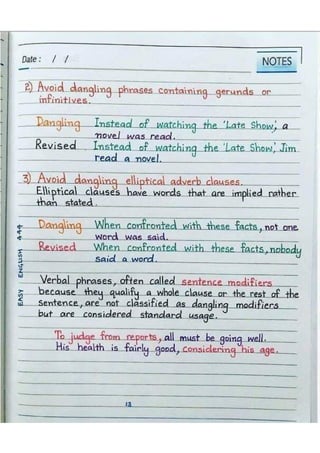 Date: / /
NOTES
2) Avoid dangling phrases containing gerunds or
infinitives.
Dangling Instead of watching the 'Late Show', a
novel was read.
Revised Instead of watching the 'Late Show', Jim
read a novel.
3) Avoid dangling elliptical adverb clauses.
Elliptical clauses have words that are implied rather
than stated.
Dangling When confronted with these facts, not one
word was said.
Revised When confronted with these facts, nobody
said a word.
Verbal phrases, often called sentence modifiers
because they qualify a whole clause or the rest of the
sentence, are not classified as dangling modifiers
but are considered standard usage.
To judge from reports, all must be going well.
His health is fairly good, considering his age.
EASY ENGLISH 4.49